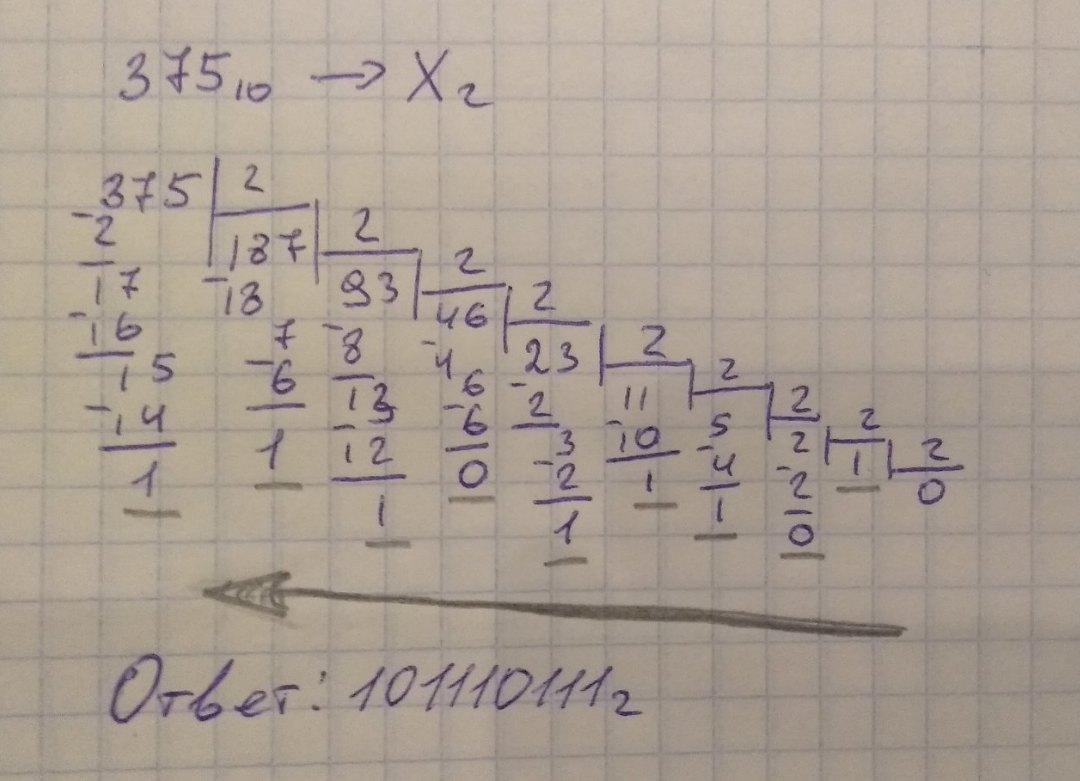 375₁₀ → X₂
375 2
-2 187 2
17 -18 93 2
-16 7 -8 46 2
15 -6 13 -4 23 2
-14 1 -12 6 -2 11 2
1 1 -6 3 -10 5 2
0 -2 1 -4 2 2
1 1 -2 1 2
0 0
Ответ: 101110111₂